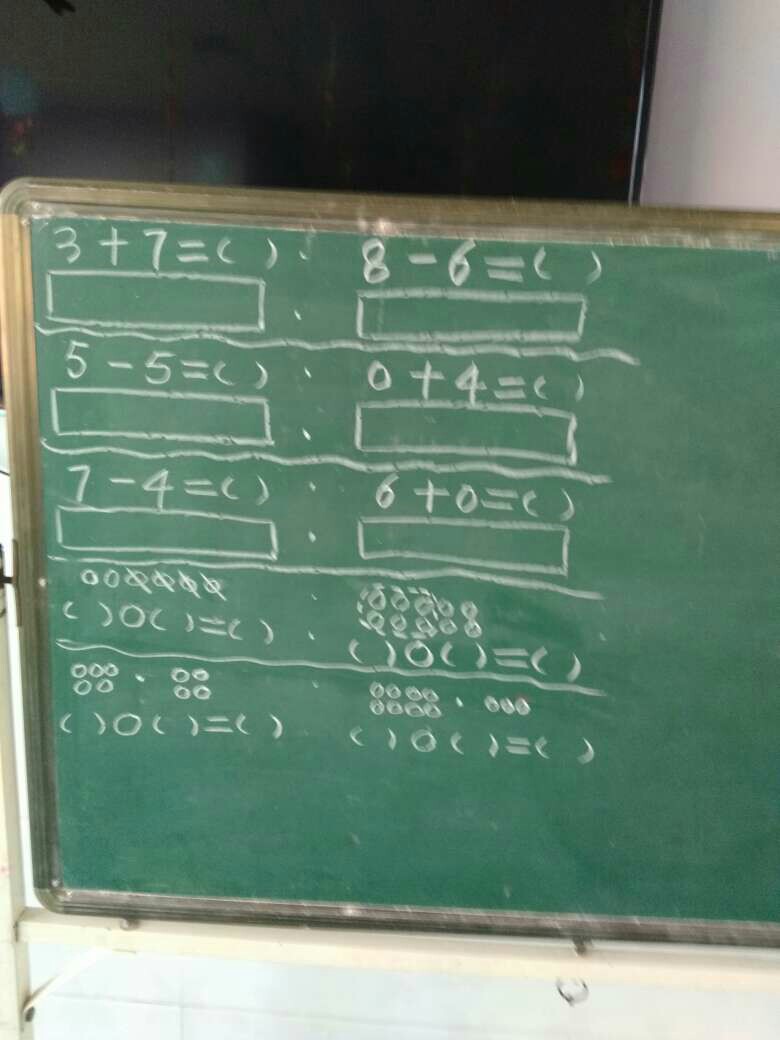 3+7=( ) 8-6=( )
5-5=( ) 0+4=( )
7-4=( ) 6+0=( )
( )○( )=( ) ( )○( )=( )
( )○( )=( ) ( )○( )=( )